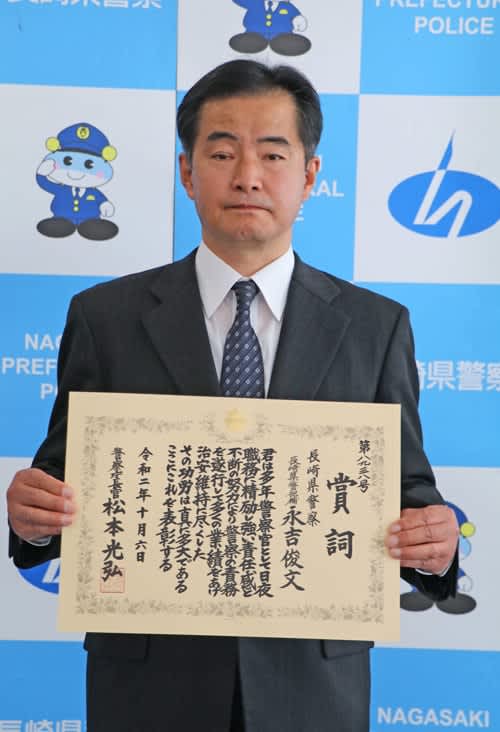 長崎県警察
PREFECTURAL
POLICE
NAG
PREFE
PO
崎県警察
賞詞
長崎県警察
永吉俊文
君は多年警察官として日夜
職務に精励し強い責任感と
不断の努力により警察の責務
を遂行して多くの業績をあげ
治安維持に尽くした
その功労は真に多大である
ここにこれを表彰する
令和二年十月六日
警察庁長官 松本光弘
長崎県警
NAGASAKI